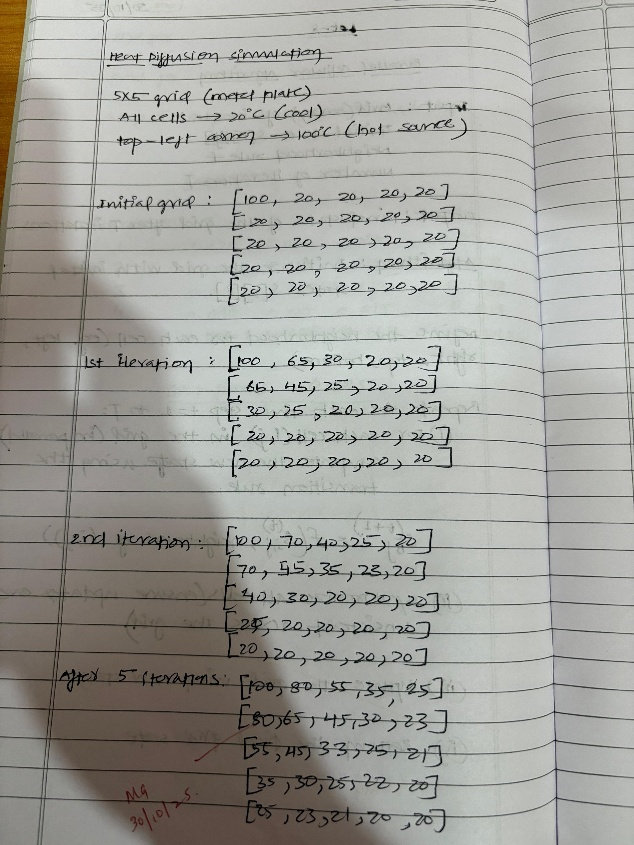 Heat Diffusion simulation
5X5 grid (metal plate)
All cells → 20°C (cool)
top-left → 100°C (hot
Initial grid : [100, 20, 20, 20, 20]
[20, 20, 20, 20, 20]
[20, 20, 20, 20, 20]
[20, 20, 20, 20, 20]
[20, 20, 20, 20, 20]
1st iteration : [100, 65, 30, 20, 20]
[65, 45, 25, 20, 20]
[30, 25, 20, 20, 20]
[20, 20, 20, 20, 20]
[20, 20, 20, 20, 20]
2nd iteration : [100, 70, 40, 25, 20]
[70, 55, 35, 23, 20]
[40, 30, 20, 20, 20]
[20, 20, 20, 20, 20]
[20, 20, 20, 20, 20]
After 5 iterations: [100, 80, 55, 35, 25]
[80, 65, 45, 30, 23]
[55, 45, 33, 25, 21]
[35, 30, 25, 22, 20]
[25, 23, 21, 20, 20]
30/10/25.